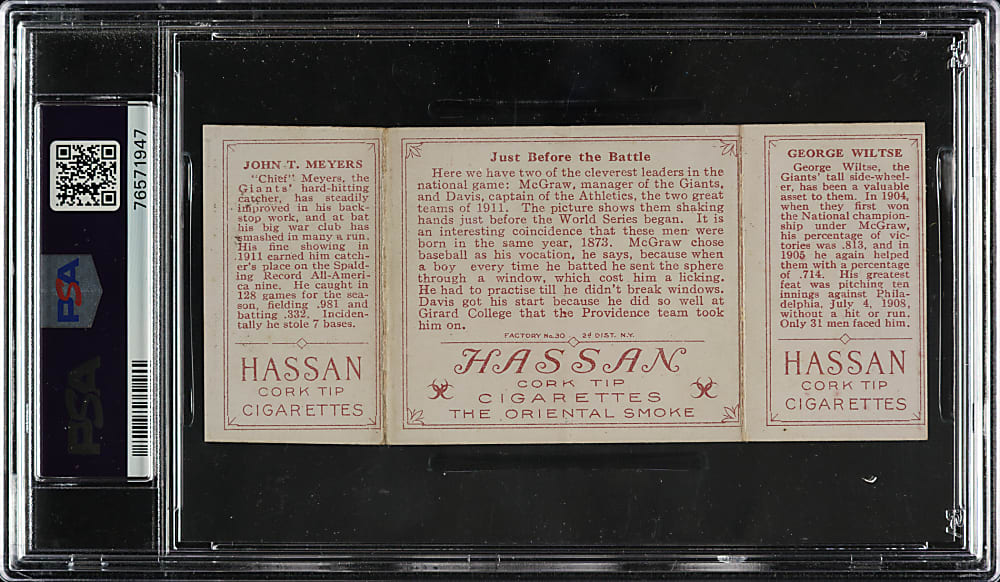 76571947
PSA
PSA
JOHN T. MEYERS
"Chief" Meyers, the
Giants' hard-hitting
catcher, has steadily
improved in his back-
stop work, and at bat
his big war club has
smashed in many a run.
His fine showing in
1911 earned him catch-
er's place on the Spald-
ing Record All-Ameri-
ca nine. He caught in
128 games for the sea-
son, fielding .981 and
batting .332. Inciden-
tally he stole 7 bases.
HASSAN
CORK TIP
CIGARETTES
Just Before the Battle
Here we have two of the cleverest leaders in the
national game: McGraw, manager of the Giants,
and Davis, captain of the Athletics, the two great
teams of 1911. The picture shows them shaking
hands just before the World Series began. It is
an interesting coincidence that these men were
born in the same year, 1873. McGraw chose
baseball as his vocation, he says, because when
a boy every time he batted he sent the sphere
through a window, which cost him a licking.
He had to practise till he didn't break windows.
Davis got his start because he did so well at
Girard College that the Providence team took
him on.
FACTORY No. 30 2d DIST. N.Y.
HASSAN
CORK TIP
CIGARETTES
THE ORIENTAL SMOKE
GEORGE WILTSE
George Wiltse, the
Giants' tall side-wheel-
er, has been a valuable
asset to them. In 1904,
when they first won
the National champion-
ship under McGraw,
his percentage of vic-
tories was .813, and in
1905 he again helped
them with a percentage
of .714. His greatest
feat was pitching ten
innings against Phila-
delphia, July 4, 1908,
without a hit or run.
Only 31 men faced him.
HASSAN
CORK TIP
CIGARETTES